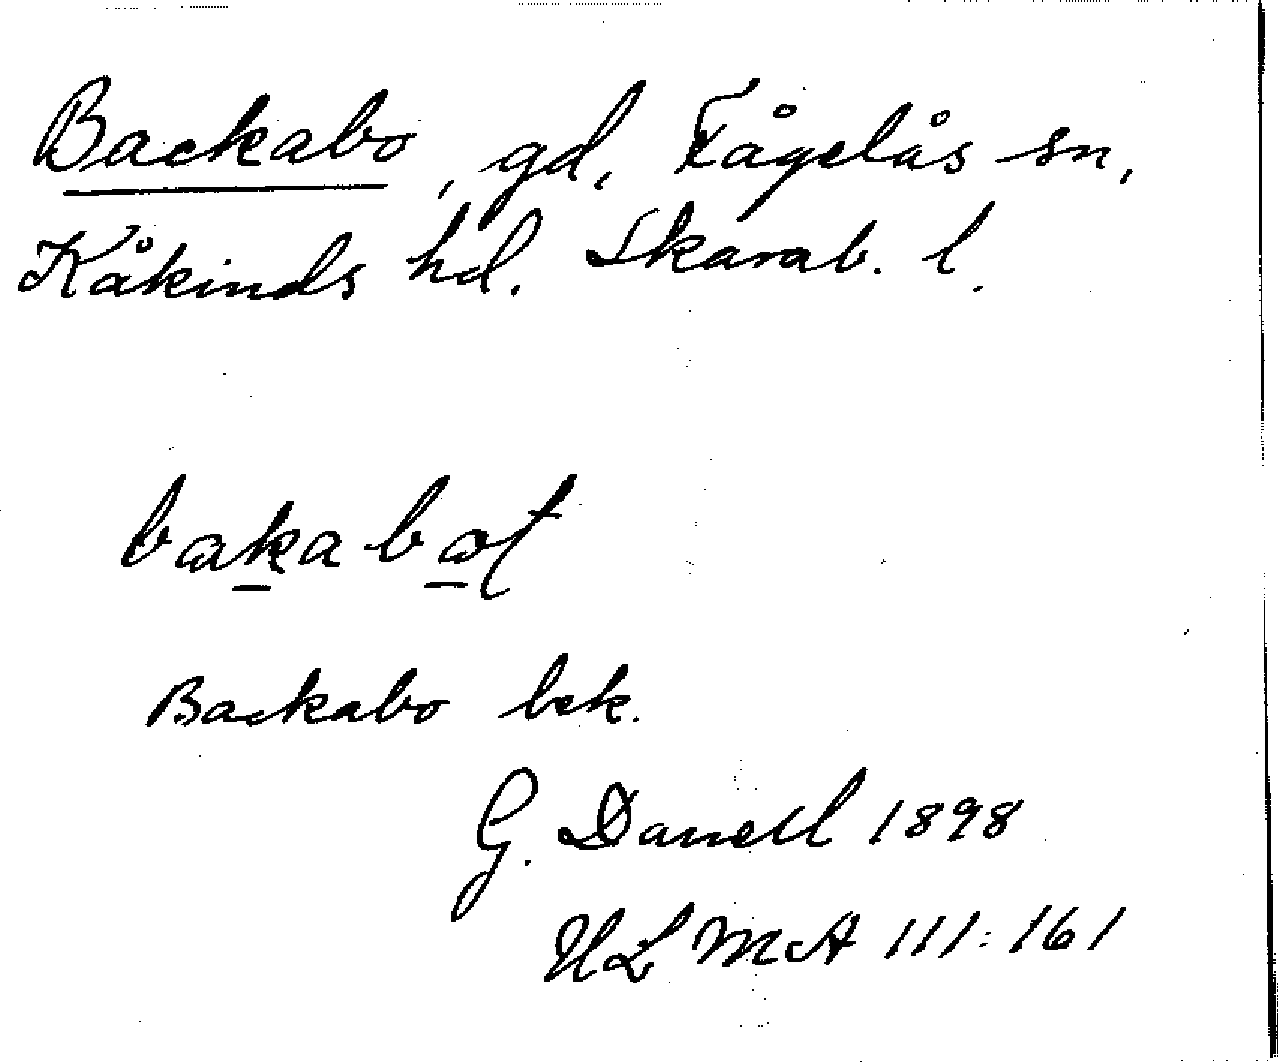 Backabo, gd, Fågelås sn,
Kåkinds hd. Skarab. l.
bakabot
Backabo bek.
G. Danell 1898
ULMA 111:161